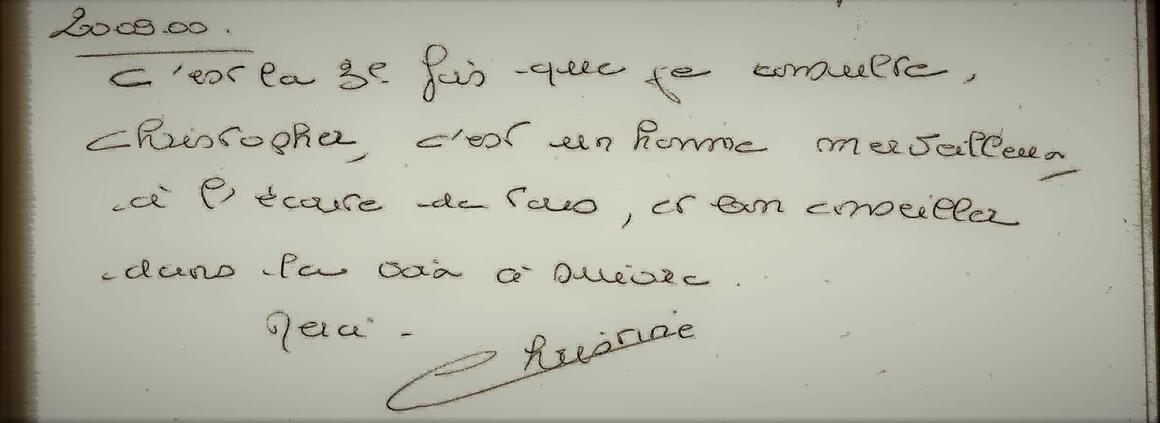 200900.
C'est la 3e fois que je consulte,
Christopher, c'est un homme merveilleux
à l'écoute de tous, et bon conseiller
dans la voix à suivre.
Merci -
Christine